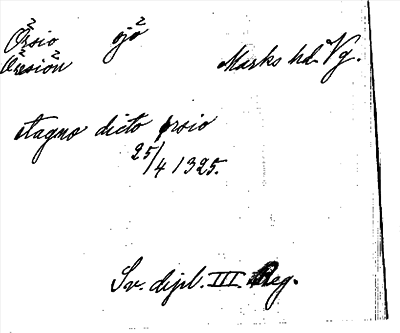 Örsio öjö
Öresiön Marks hd. Vg.
stagno dicto orsio
25/4 1325.
Sv. dipl. III Reg.